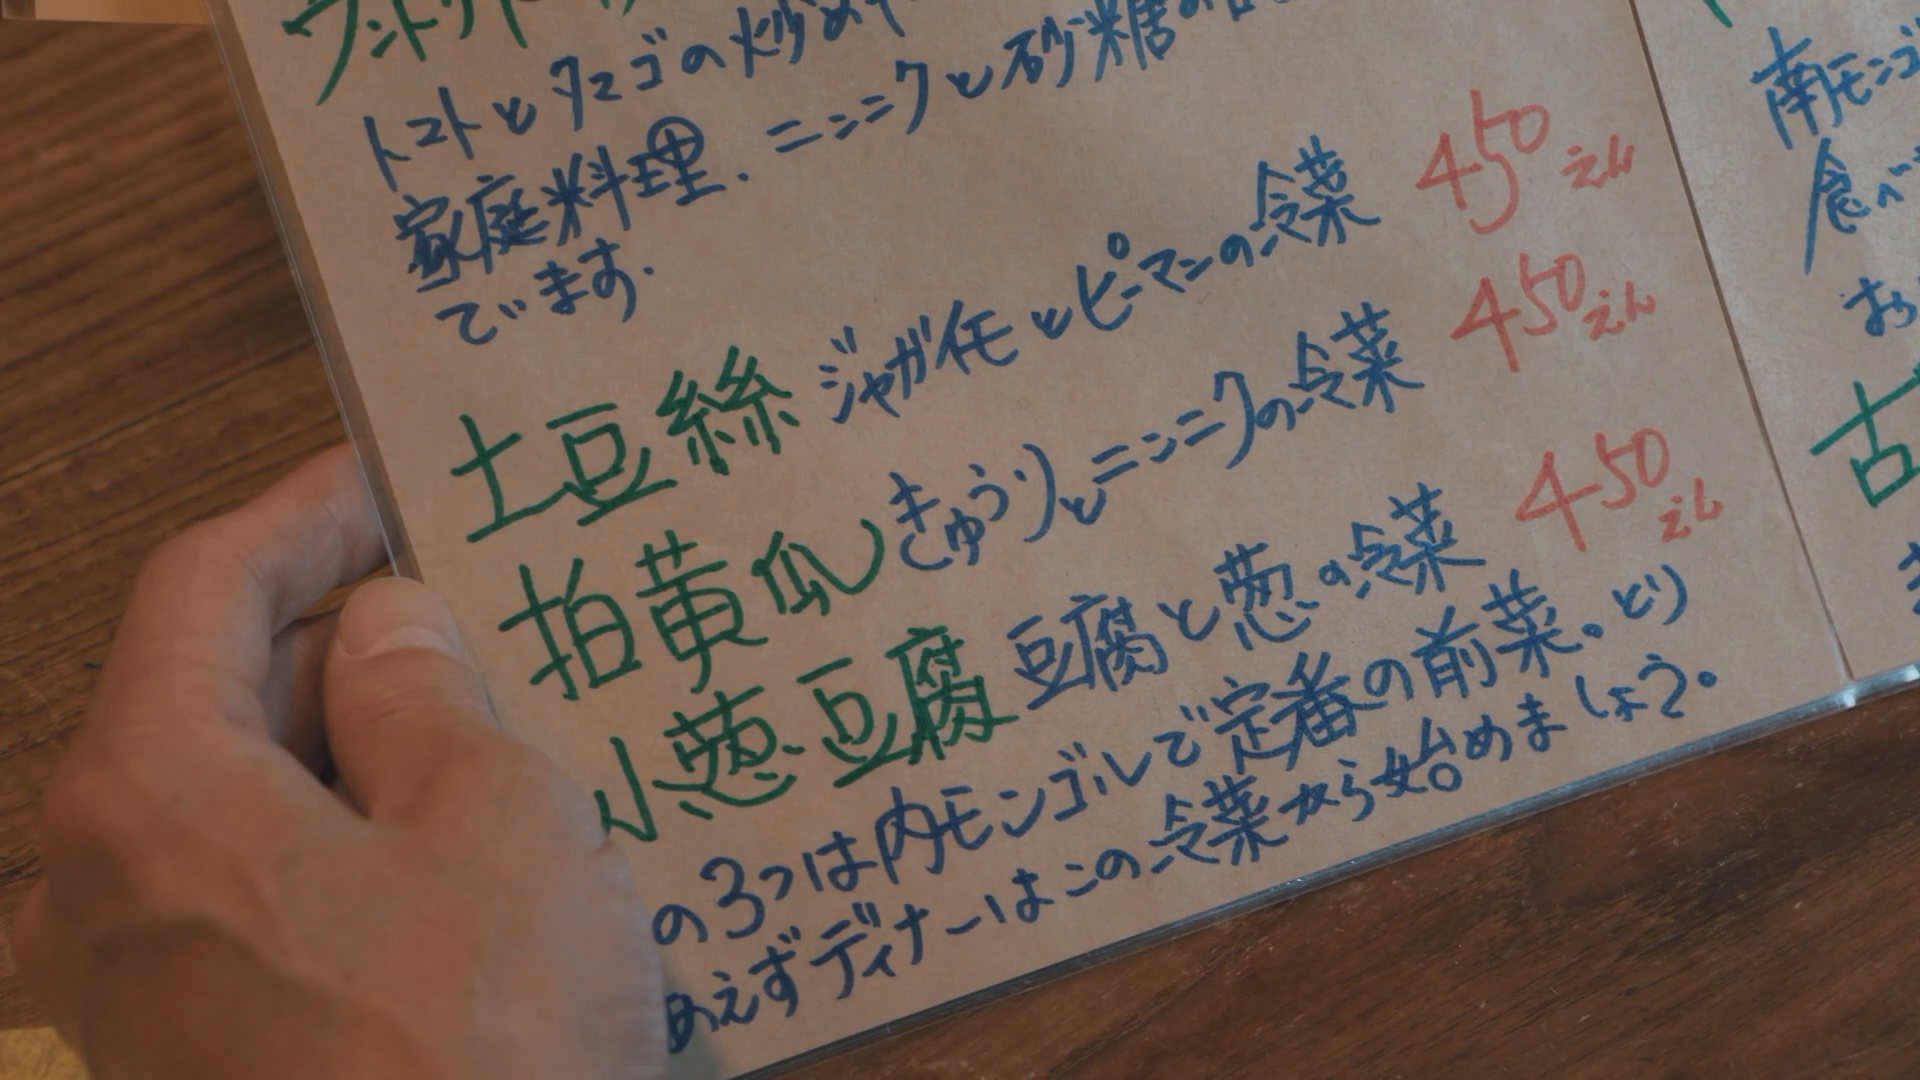 トマトとタマゴの炒め
家庭料理.ニンニクと砂糖の
でいます.
土豆絲 ジャガイモとピーマンの冷菜 450えん
拍黄瓜 きゅうりとニンニクの冷菜 450えん
小葱豆腐 豆腐と葱の冷菜 450えん
の3つは内モンゴルで定番の前菜。とり
あえずディナーはこの冷菜から始めましょう。
南モンゴ
食べ
お
古